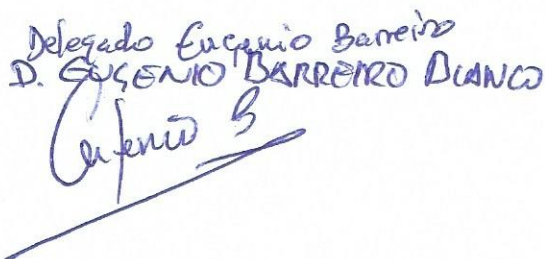 Delegado Eugenio Barreiro
D. EUGENIO BARREIRO BLANCO
Eugenio B